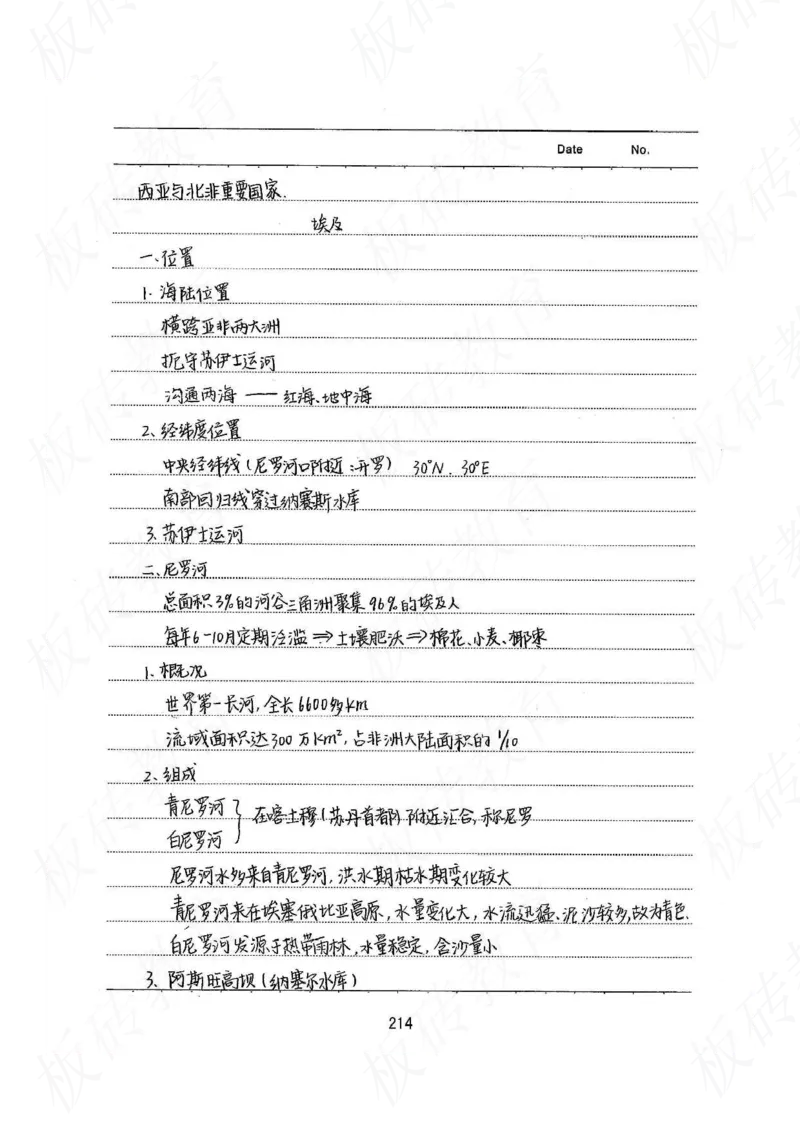 Date No.
西亚与北非重要国家.
埃及
一、位置
1. 海陆位置
横跨亚非两大洲
扼守苏伊士运河
沟通两海 —— 红海、地中海
2、经纬度位置
中央经纬线(尼罗河口附近:开罗) 30°N . 30°E
南部回归线穿过纳塞斯水库
3. 苏伊士运河
二、尼罗河
总面积3%的河谷三角洲聚集96%的埃及人
每年6-10月定期泛滥 ⇒ 土壤肥沃 ⇒ 棉花、小麦、椰枣
1. 概况
世界第一长河, 全长6600多km
流域面积达300万km², 占非洲大陆面积的1/10
2、组成
青尼罗河
白尼罗河
} 在喀土穆(苏丹首都)附近汇合, 称尼罗
尼罗河水多来自青尼罗河, 洪水期枯水期变化较大
青尼罗河来在埃塞俄比亚高原, 水量变化大, 水流迅猛、泥沙较多, 故为青色.
白尼罗河发源于热带雨林, 水量稳定, 含沙量小
3、阿斯旺高坝(纳塞尔水库)
214
板砖教育